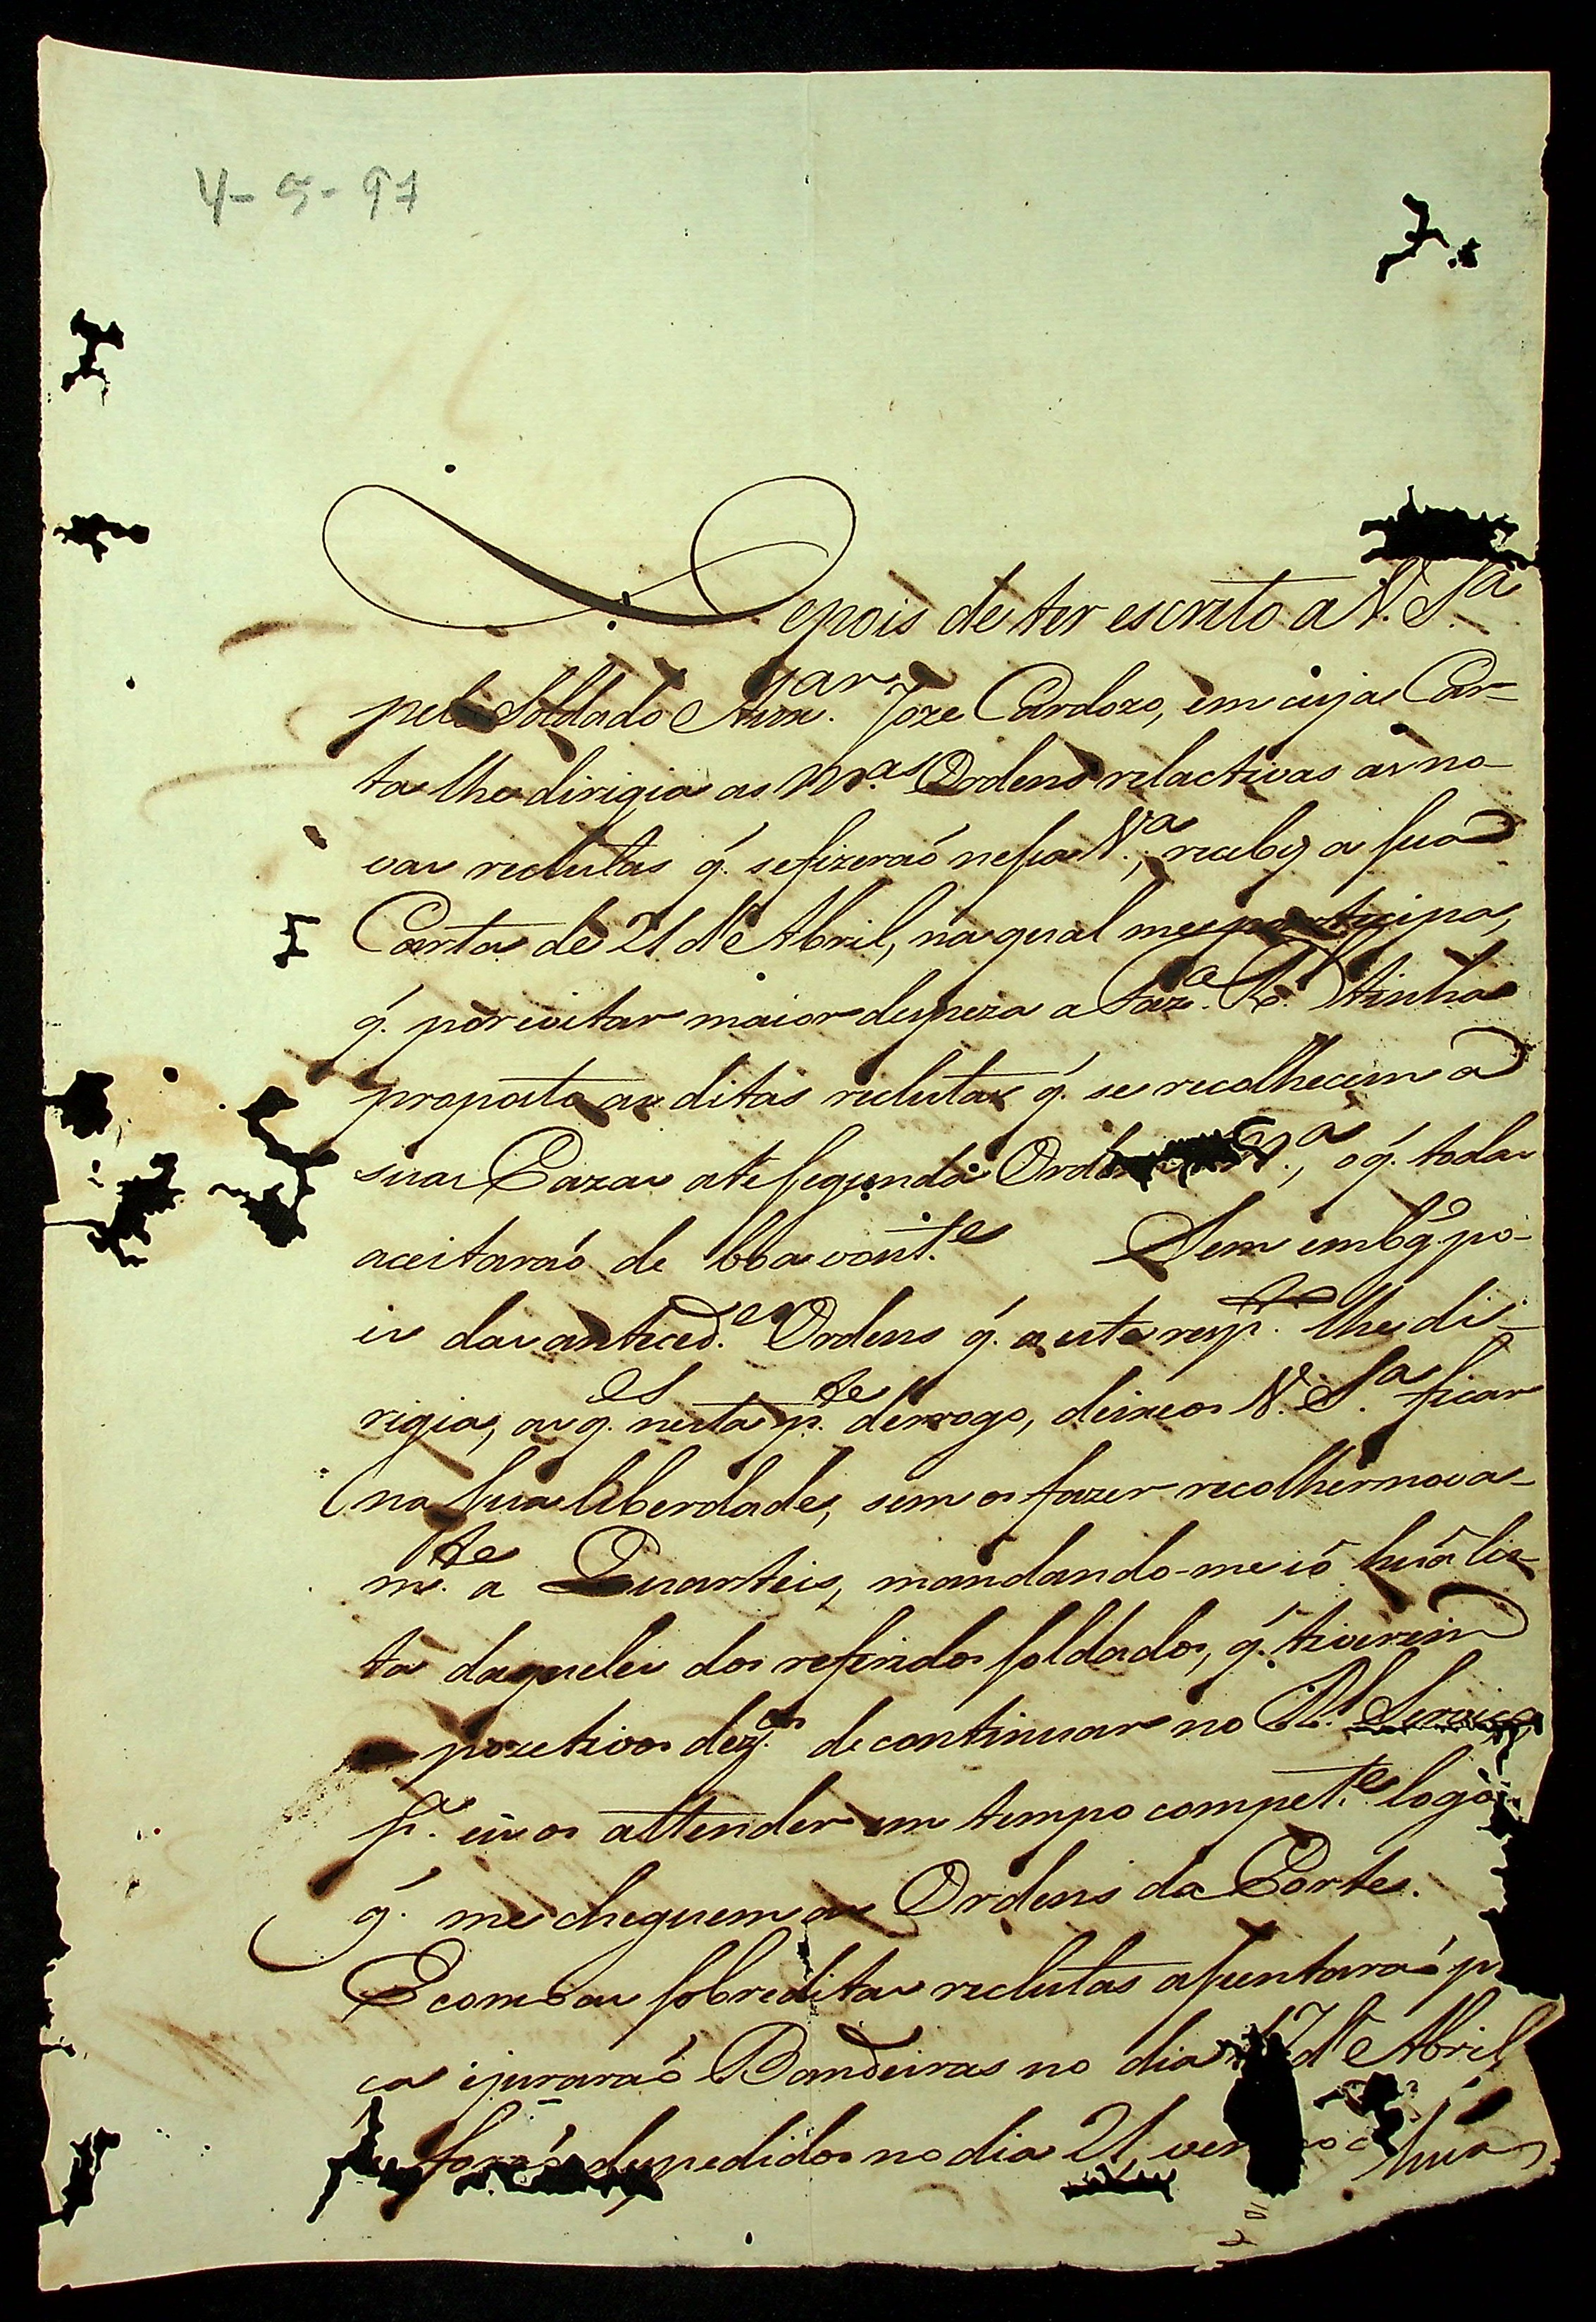 4-5-97
Depois de ter escrito a V. S.ª
pelo Soldado Aux.ar Joze Cardozo, em cuja Car-
ta lhe dirigia as m.as Ordens relactivas as no-
vas reclutas q. se fizeraõ nessa V.ª, recebi a sua
Carta de 21 de Abril, na qual me participa,
q. por evitar maior despeza a Faz.ª R. tinha
proposto as ditas reclutas q. se recolhecem a
suas Cazas ate segunda Ordem, o q. todas
aceitaraõ de boa vont.e Sem embg.o po-
is das anteced.es Ordens q. a este resp.to lhe di-
rigia, as q.es nesta p.te derrogo, deixe os V. S.ª ficar
na sua liberdade, sem os fazer recolher nova-
m.te a Quarteis, mandando-me só huã lis-
ta daqueles dos referidos soldados, q. tiverem
pozetivos dez.os de continuar no R.l Serviço
p.ª eu os attender em tempo compet.e logo
q. me cheguem as Ordens da Corte.
E como as sobreditas reclutas asentaraõ p
ca e juraraõ Bandeiras no dia 17 de Abril
foraõ despedidos no dia 21, huã